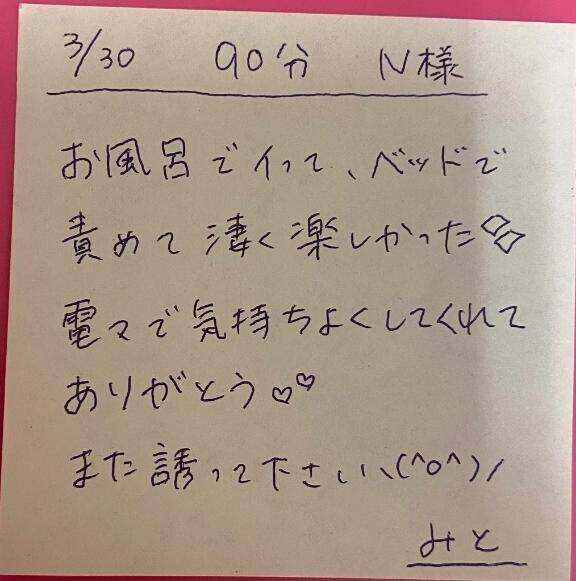 3/30 90分 N様
お風呂でイって、ベッドで
責めて凄く楽しかった
電マで気持ちよくしてくれて
ありがとう♡♡
また誘って下さい\(^o^)/
みと